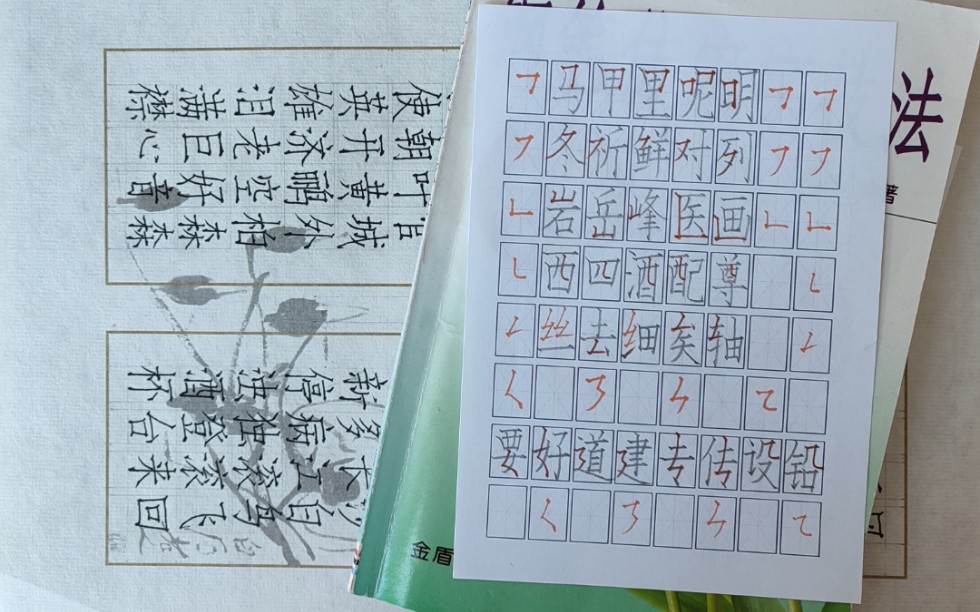 马甲里呢明
冬祈鲜对列
岩岳峰医画
西四酒配尊
丝去细矣轴
要好道建专传设铅
法
著
金盾
使英雄泪满襟
朝开济老巨心
叶黄鹂空好音
官城外柏森森
新停浊酒杯
多病独登台
长江滚滚来
白鸟飞回